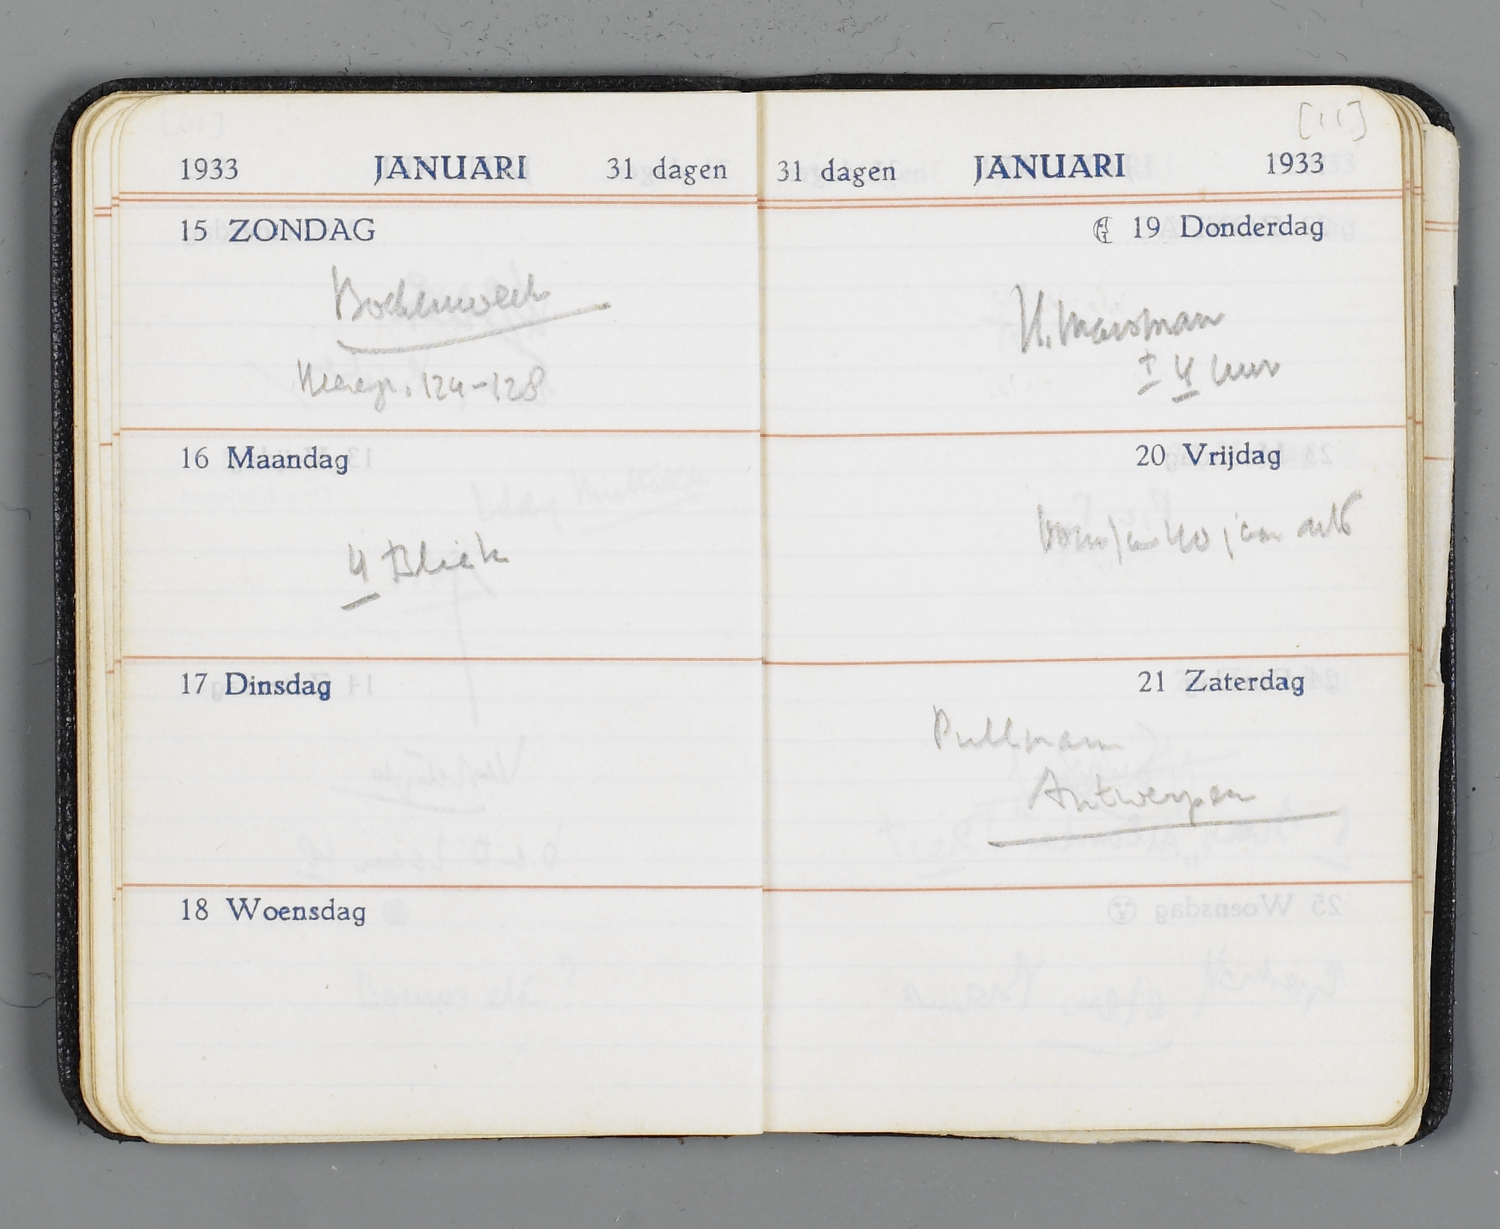 1933 JANUARI 31 dagen
15 ZONDAG
124-128
16 Maandag
4
17 Dinsdag
18 Woensdag
[11]
31 dagen JANUARI 1933
19 Donderdag
H. Marsman
± 4 uur
20 Vrijdag
40 jaar
21 Zaterdag
Pullman
Antwerpen
25 Woensdag